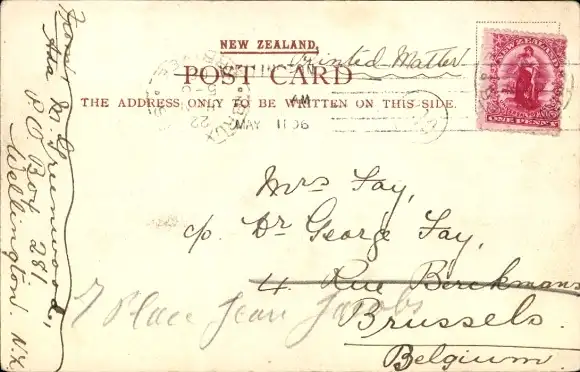 NEW ZEALAND,
Printed Matter
POST CARD
THE ADDRESS ONLY TO BE WRITTEN ON THIS SIDE.
AM
MAY 11 06
22
NEW ZEALAND
ONE PENNY
Mrs Fay,
c/o. Dr George Fay,
4 Rue Berckmans
7 Place Jean Jacobs
Brussels.
Belgium.
From
Ada Dr. Greenwood,
P.O. Box 281.
Wellington. N.Z.